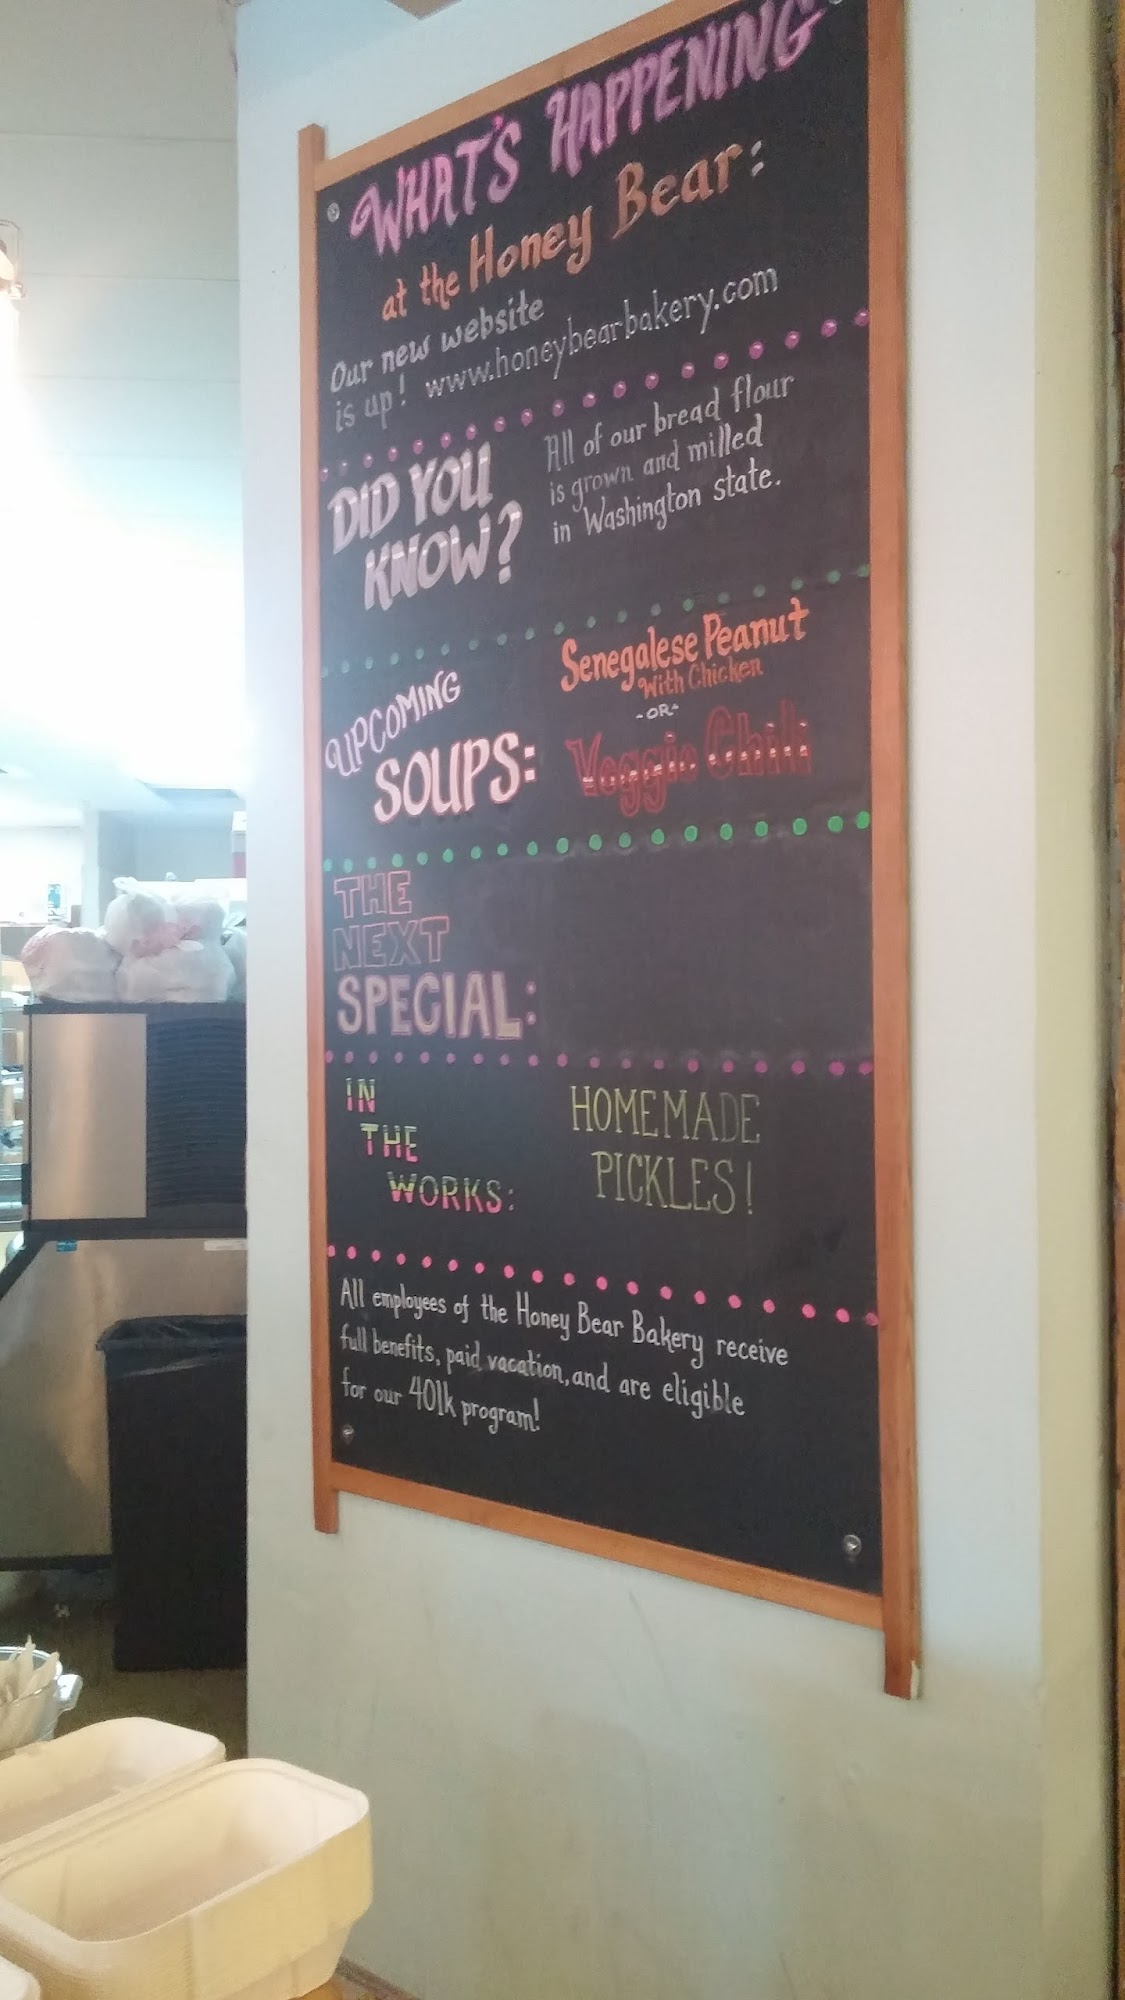 WHAT'S HAPPENING
at the Honey Bear:
Our new website
is up! www.honeybearbakery.com
DID YOU
KNOW?
All of our bread flour
is grown and milled
in Washington state.
UPCOMING
SOUPS:
Senegalese Peanut
With Chicken
-OR-
Veggie Chili
THE
NEXT
SPECIAL:
IN
THE
WORKS:
HOMEMADE
PICKLES!
All employees of the Honey Bear Bakery receive
full benefits, paid vacation, and are eligible
for our 401k program!